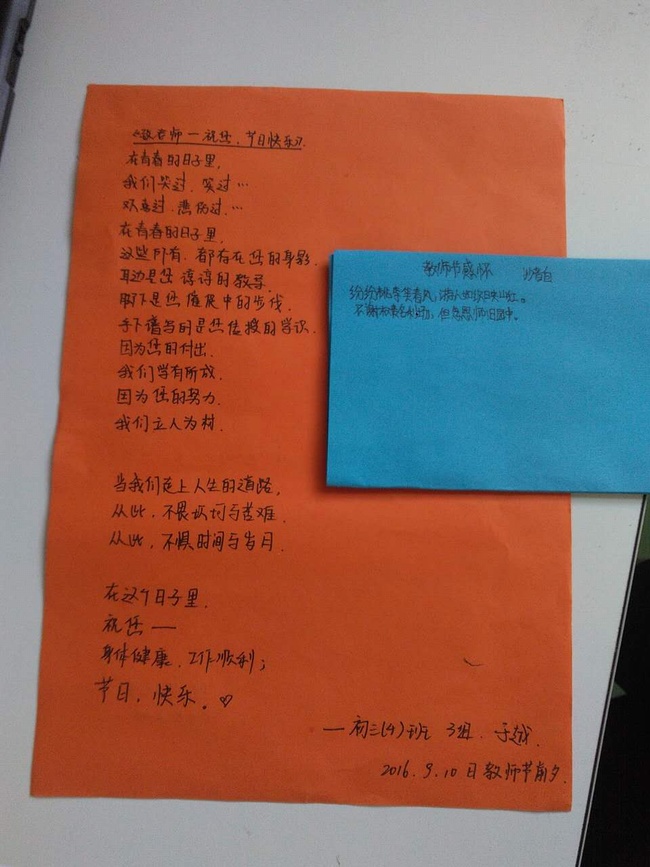 《致老师—祝您,节日快乐》
在青春的日子里,
我们哭过、笑过…
欢喜过、悲伤过…
在青春的日子里,
这些所有,都存在您的身影,
耳边是您谆谆的教导
脚下是您催展中的步伐
手下谱写的是您传授的学识
因为您的付出
我们学有所放
因为您的努力
我们立人为材
当我们走上人生的道路,
从此,不畏坎坷与苦难
从此,不惧时间与岁月
在这个日子里
祝您——
身体健康、工作顺利;
节日,快乐。♡
—初三(4)班 3组、于越
2016.9.10日教师节前夕
教师节感怀
纷纷桃李笑春风,
不谢 但